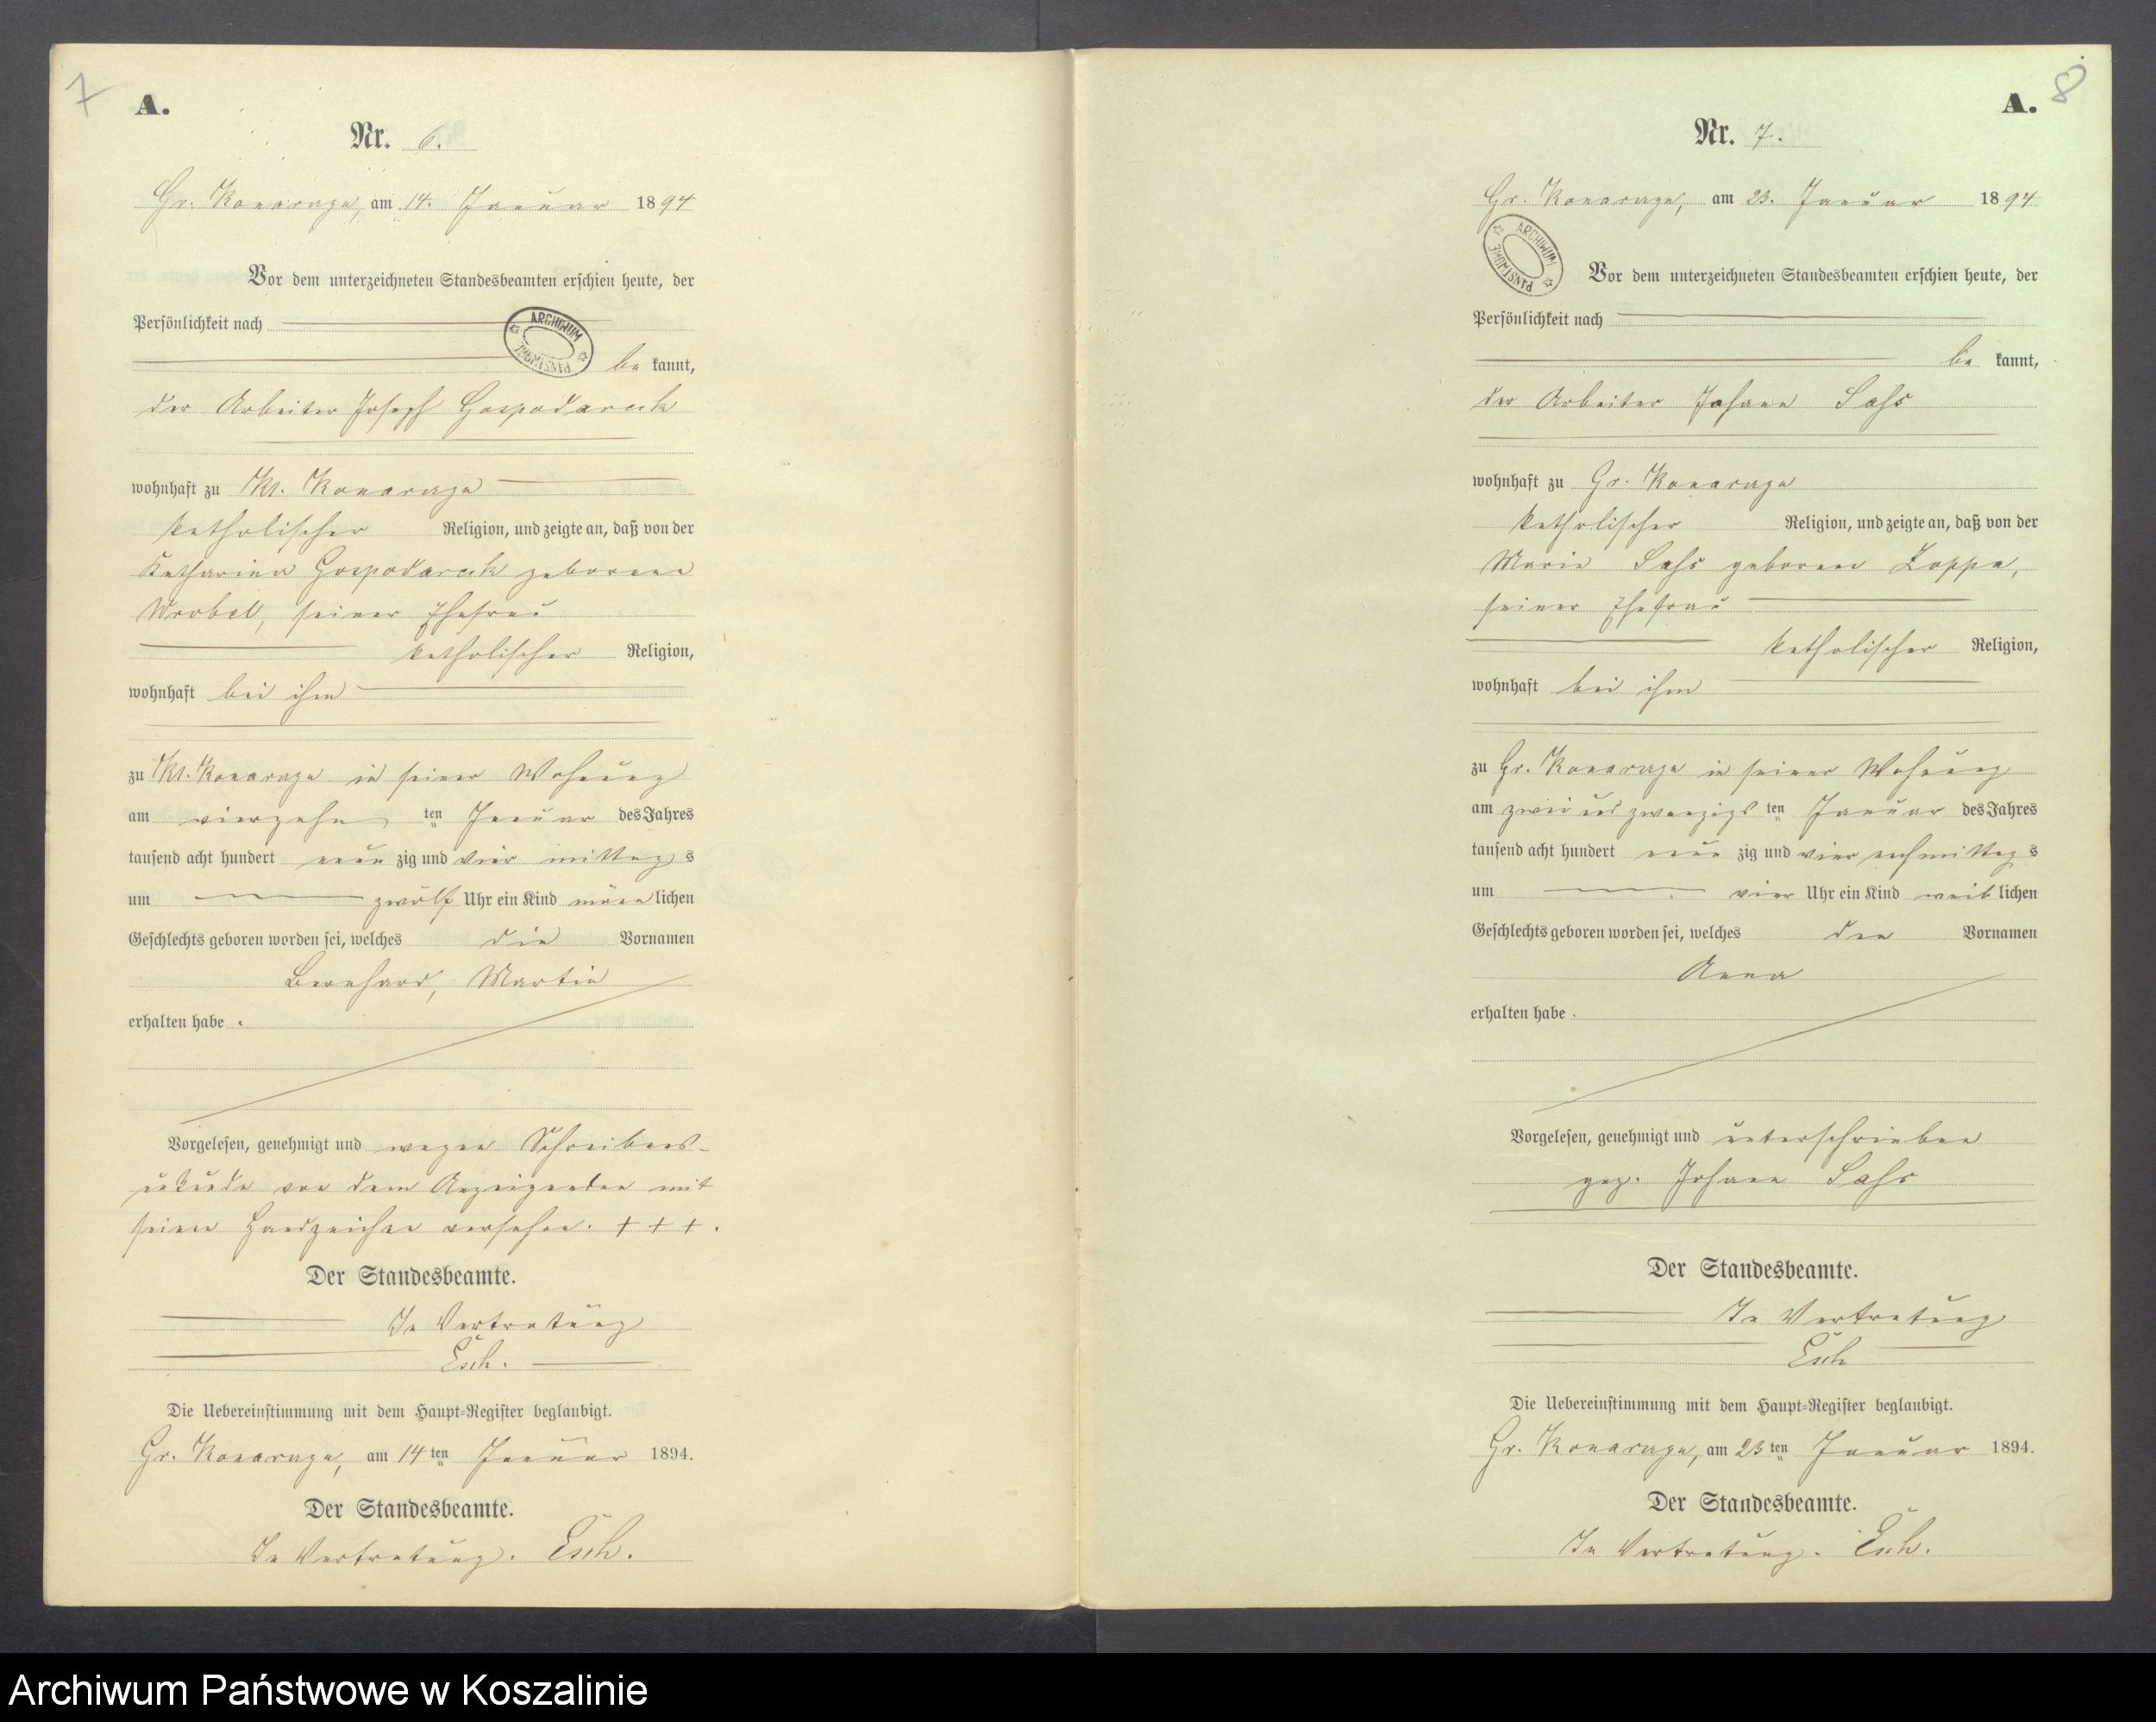 7
A.
Nr. 6.
Gr. Konarzyn, am 14. Januar 1894
Vor dem unterzeichneten Standesbeamten erschien heute, der
Persönlichkeit nach
ARCHIWUM PAŃSTWOWE
be kannt,
der Arbeiter Joseph Gospodareck
wohnhaft zu Kl. Konarzyn
katholischer Religion, und zeigte an, daß von der
Katharina Gospodareck geborene
Wrobel, seiner Ehefrau
katholischer Religion,
wohnhaft bei ihm
zu Kl. Konarzyn in seiner Wohnung
am vierzehn ten Januar des Jahres
tausend acht hundert neun zig und vier mittag s
um zwölf Uhr ein Kind männ lichen
Geschlechts geboren worden sei, welches die Vornamen
Bernhard, Martin
erhalten habe.
Vorgelesen, genehmigt und wegen Schreibens-
unkunde von dem Anzeigenden mit
seinen Handzeichen versehen. + + +.
Der Standesbeamte.
In Vertretung
Esch.
Die Uebereinstimmung mit dem Haupt-Register beglaubigt.
Gr. Konarzyn, am 14 ten Januar 1894.
Der Standesbeamte.
In Vertretung. Esch.
A. 8
Nr. 7.
Gr. Konarzyn, am 23. Januar 1894
ARCHIWUM PAŃSTWOWE
Vor dem unterzeichneten Standesbeamten erschien heute, der
Persönlichkeit nach
be kannt,
der Arbeiter Johann Sahs
wohnhaft zu Gr. Konarzyn
katholischer Religion, und zeigte an, daß von der
Marie Sahs geboren Zoppa,
seiner Ehefrau
katholischer Religion,
wohnhaft bei ihm
zu Gr. Konarzyn in seiner Wohnung
am zwei und zwanzigs ten Januar des Jahres
tausend acht hundert neun zig und vier nachmittag s
um vier Uhr ein Kind weib lichen
Geschlechts geboren worden sei, welches den Vornamen
Anna
erhalten habe.
Vorgelesen, genehmigt und unterschrieben
gez. Johann Sahs
Der Standesbeamte.
In Vertretung
Esch
Die Uebereinstimmung mit dem Haupt-Register beglaubigt.
Gr. Konarzyn, am 23 ten Januar 1894.
Der Standesbeamte.
In Vertretung. Esch.
Archiwum Państwowe w Koszalinie